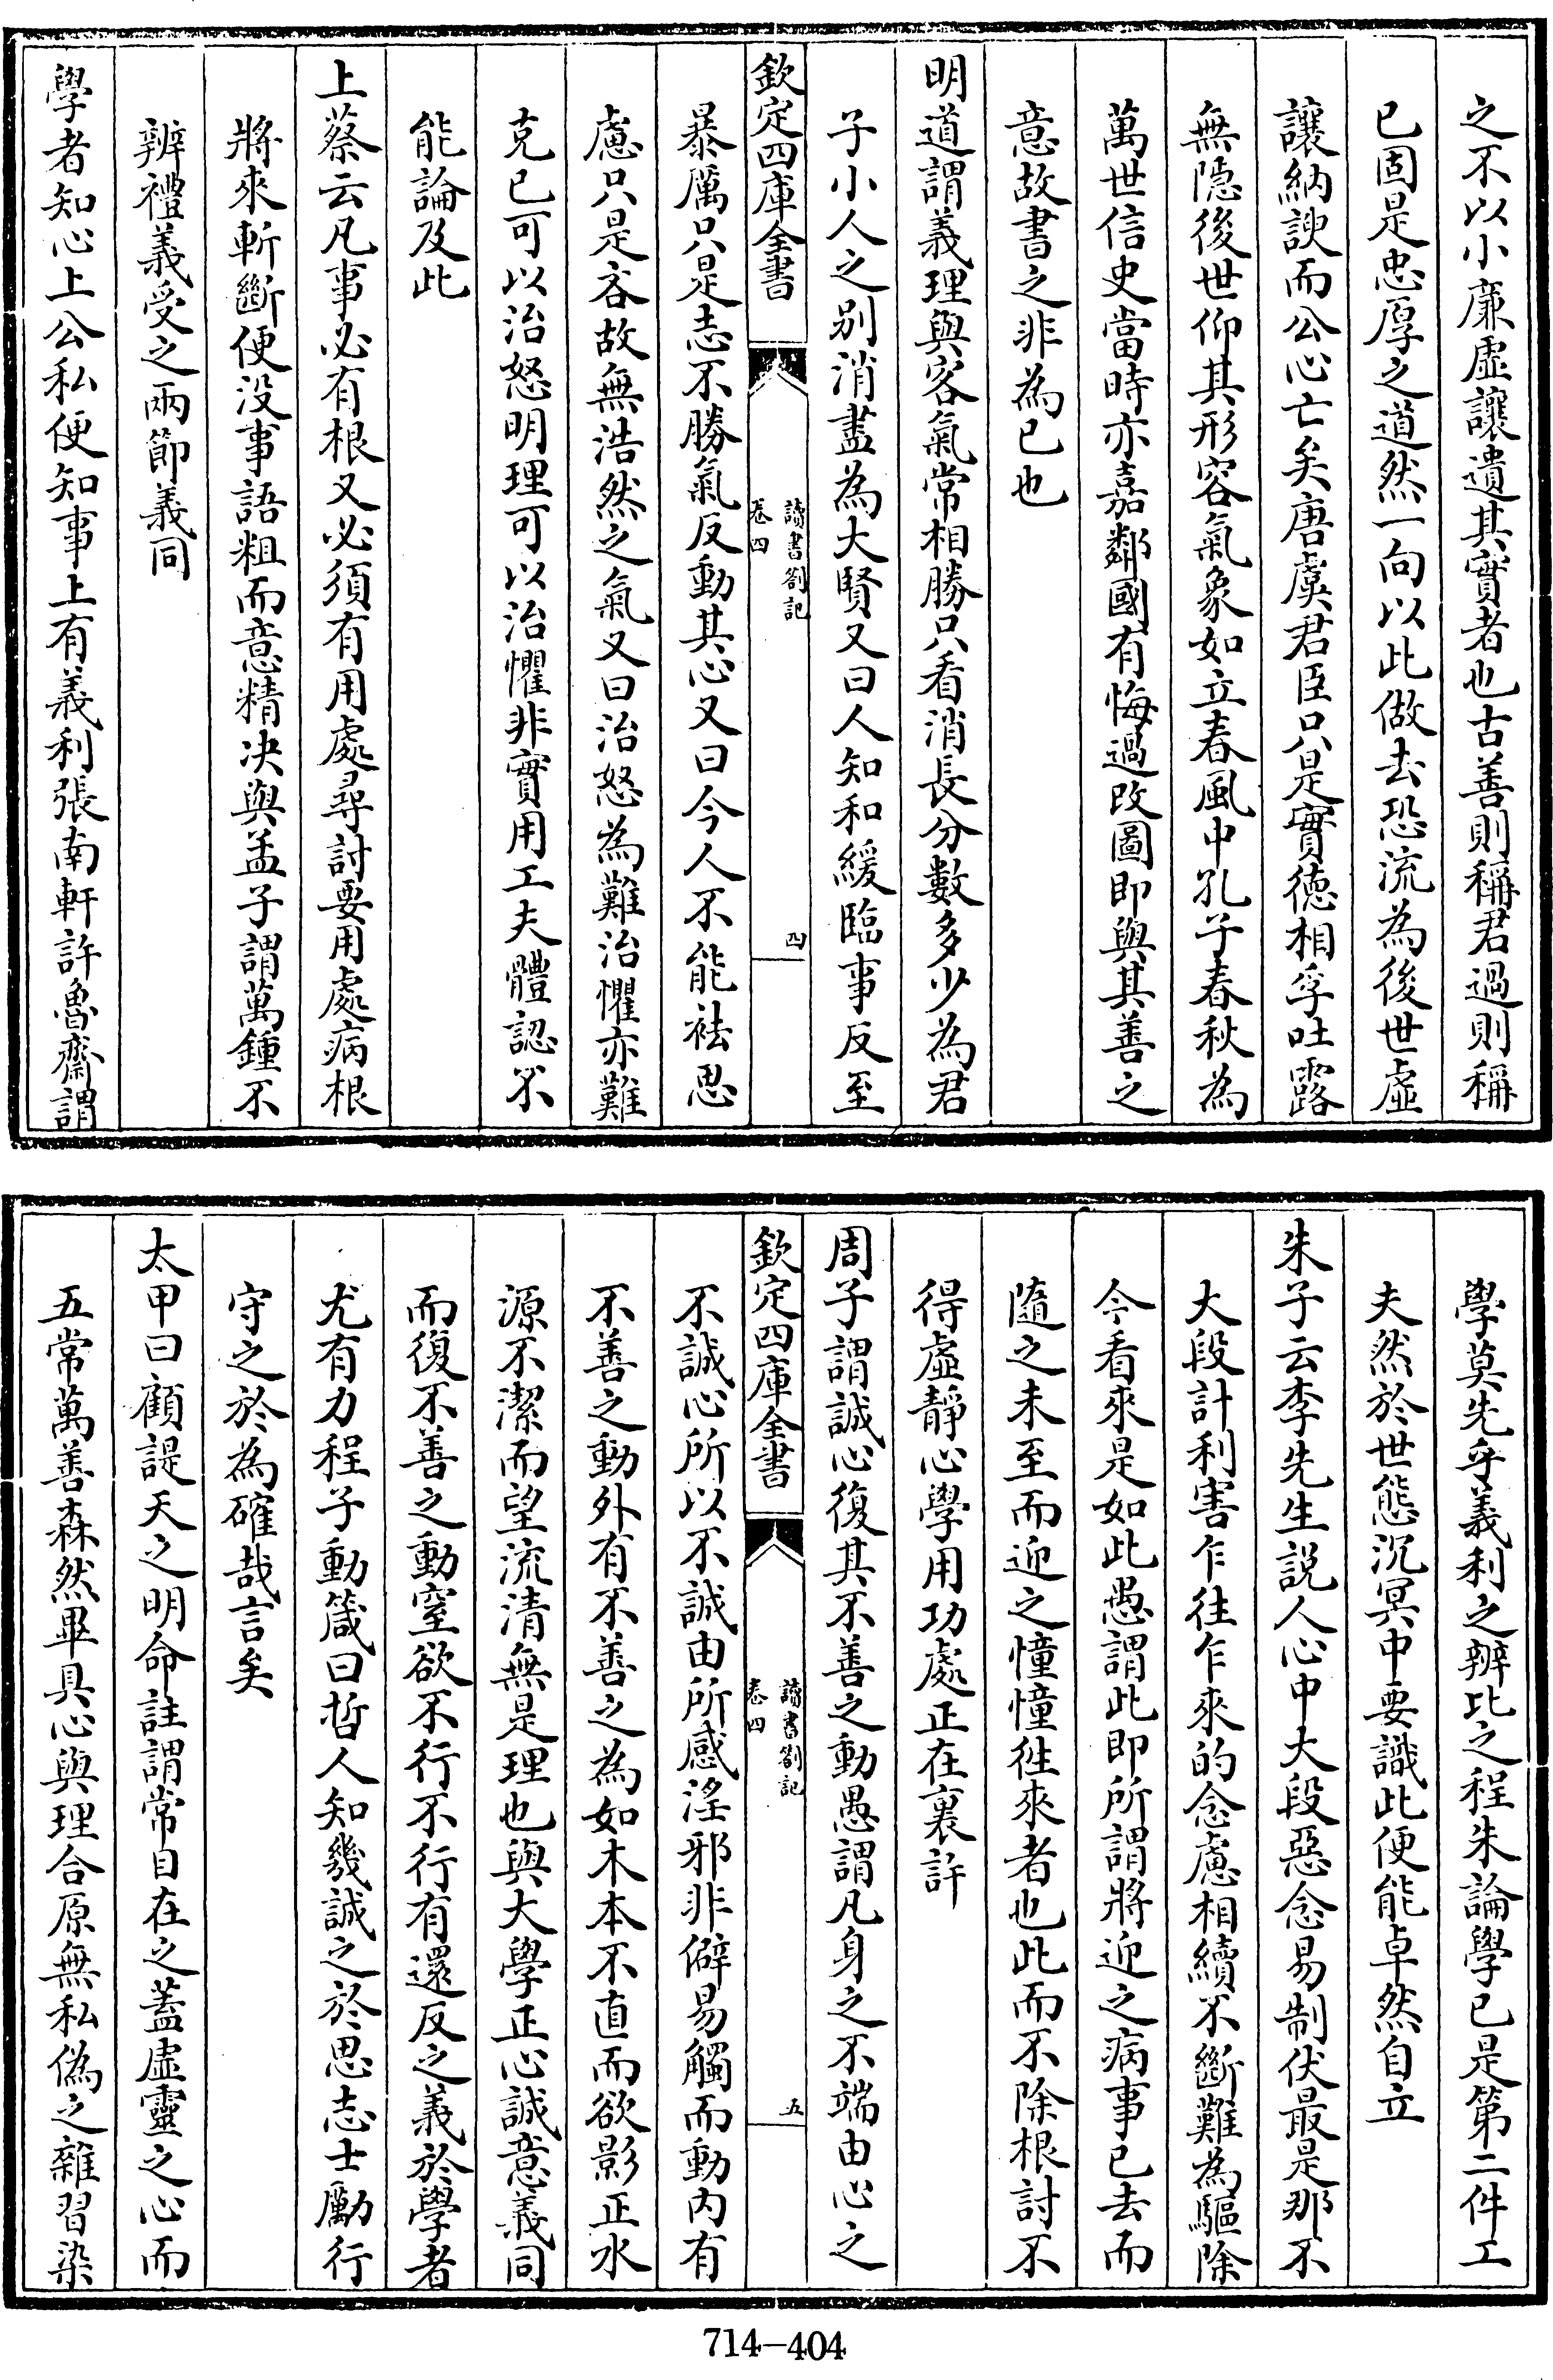 之不以小廉虛讓遺其實者也古善則稱君過則稱
已固是忠厚之道然一向以此做去恐流為後世虛
讓納諛而公心亡矣唐虞君臣只是實徳相孚吐露
無隱後世仰其形容氣象如立春風中孔子春秋為
萬世信史當時亦嘉鄰國有悔過改圖即與其善之
意故書之非為已也
明道謂義理與客氣常相勝只看消長分數多少為君
子小人之别消盡為大賢又曰人知和緩臨事反至
欽定四庫全書
讀書劄記
卷四
四
暴厲只是志不勝氣反動其心又曰今人不能袪思
慮只是吝故無浩然之氣又曰治怒為難治懼亦難
克已可以治怒明理可以治懼非實用工夫體認不
能論及此
上蔡云凡事必有根又必須有用處尋討要用處病根
將來斬斷便没事語粗而意精决與孟子謂萬鍾不
辨禮義受之兩節義同
學者知心上公私便知事上有義利張南軒許魯齋謂
學莫先乎義利之辨比之程朱論學已是第二件工
夫然於世態沉冥中要識此便能卓然自立
朱子云李先生説人心中大段惡念易制伏最是那不
大段計利害乍往乍來的念慮相續不斷難為驅除
今看來是如此愚謂此即所謂將迎之病事已去而
隨之未至而迎之憧憧徃來者也此而不除根討不
得虛靜心學用功處正在裏許
周子謂誠心復其不善之動愚謂凡身之不端由心之
欽定四庫全書
讀書劄記
卷四
五
不誠心所以不誠由所感淫邪非僻易觸而動内有
不善之動外有不善之為如木本不直而欲影正水
源不潔而望流清無是理也與大學正心誠意義同
而復不善之動窒欲不行不行有還反之義於學者
尤有力程子動箴曰哲人知幾誠之於思志士勵行
守之於為確哉言矣
太甲曰顧諟天之明命註謂常目在之蓋虛靈之心而
五常萬善森然畢具心與理合原無私偽之雜習染
714-404